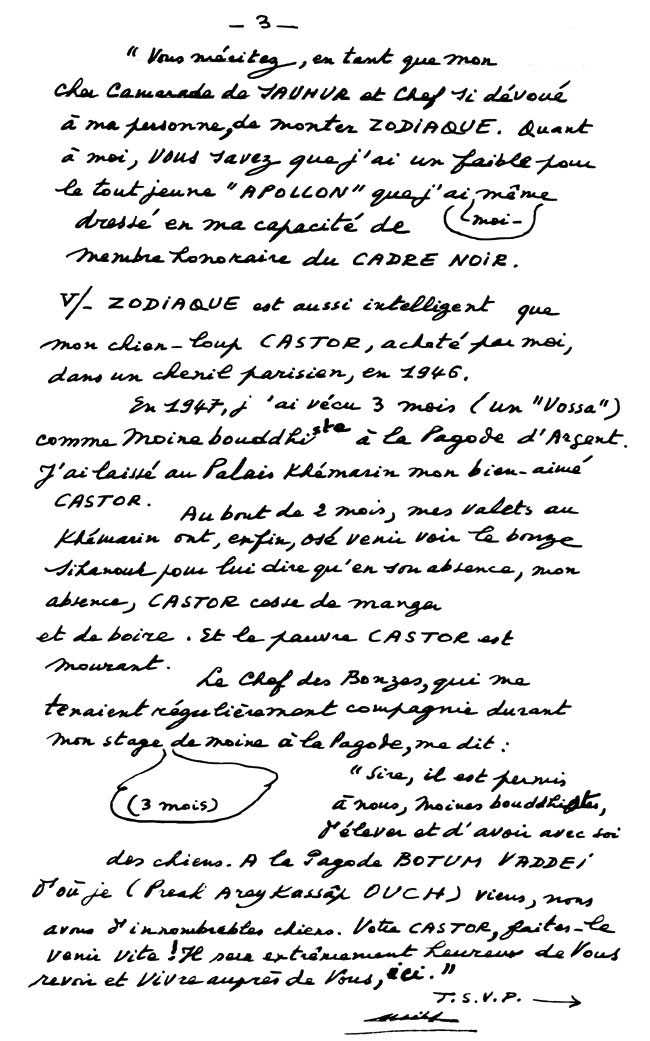 — 3 —
"Vous méritez, en tant que mon
cher Camarade de SAUMUR et Chef si dévoué
à ma personne, de monter ZODIAQUE. Quant
à moi, vous savez que j'ai un faible pour
le tout jeune "APOLLON" que j'ai même
dressé en ma capacité de (moi-
membre honoraire du CADRE NOIR.
V/- ZODIAQUE est aussi intelligent que
mon chien-loup CASTOR, acheté par moi,
dans un chenil parisien, en 1946.
En 1947, j'ai vécu 3 mois (un "Vossa")
comme Moine bouddhiste à la Pagode d'Argent.
J'ai laissé au Palais Khémarin mon bien-aimé
CASTOR. Au bout de 2 mois, mes valets au
Khémarin ont, enfin, osé venir voir le bonze
Sihanouk pour lui dire qu'en son absence, mon
absence, CASTOR cesse de manger
et de boire. Et le pauvre CASTOR est
mourant. Le Chef des Bonzes, qui me
tenaient régulièrement compagnie durant
mon stage de moine à la Pagode, me dit :
(3 mois) "Sire, il est permis
à nous, Moines bouddhistes,
d'élever et d'avoir avec soi
des chiens. A la Pagode BOTUM VADDEI
d'où je (Preah Arey Kassâp OUCH) viens, nous
avons d'innombrables chiens. Votre CASTOR, faites-le
venir vite ! Il sera extrêmement heureux de Vous
revoir et vivre auprès de Vous, ici."
T.S.V.P. →